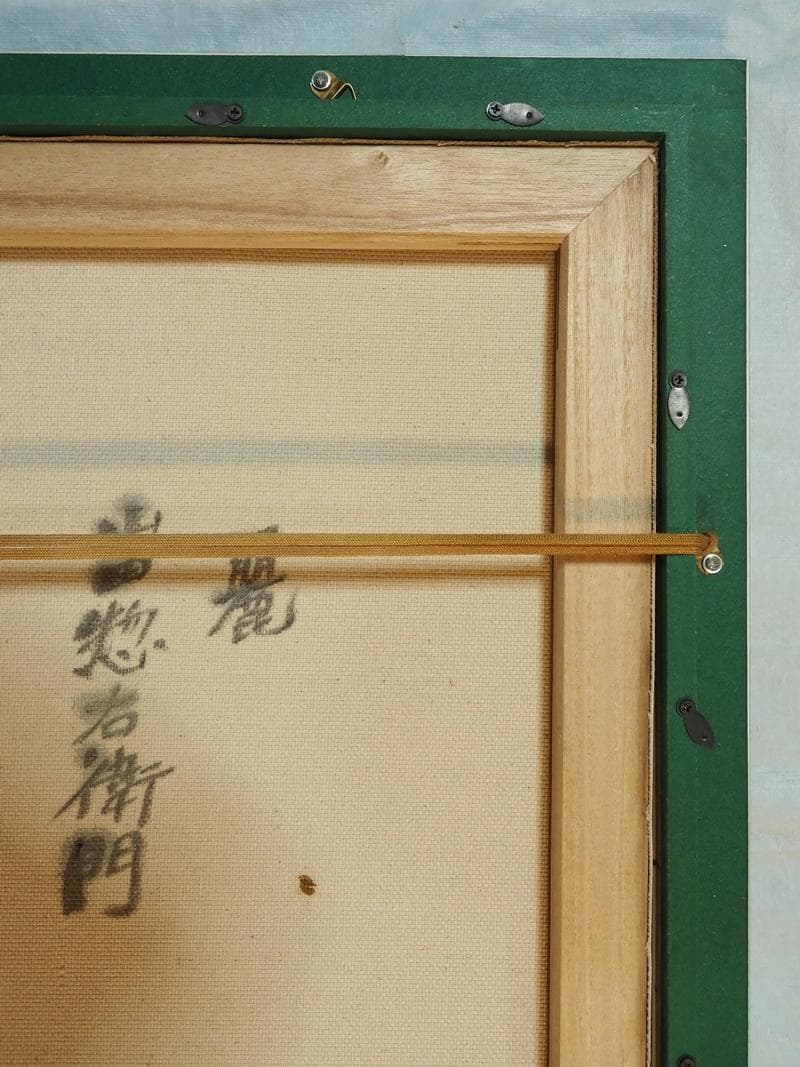 麗
惣右衛門